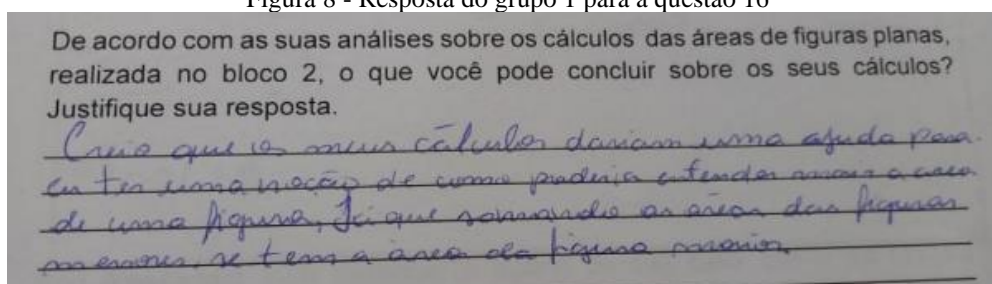 Figura 8 - Resposta do grupo 1 para a questão 16
De acordo com as suas análises sobre os cálculos das áreas de figuras planas,
realizada no bloco 2, o que você pode concluir sobre os seus cálculos?
Justifique sua resposta.
Creio que os meus cálculos dariam uma ajuda para
eu ter uma noção de como poderia entender mais a area
de uma figura, que somando as áreas das figuras
menores, se tem a area da figura maior.